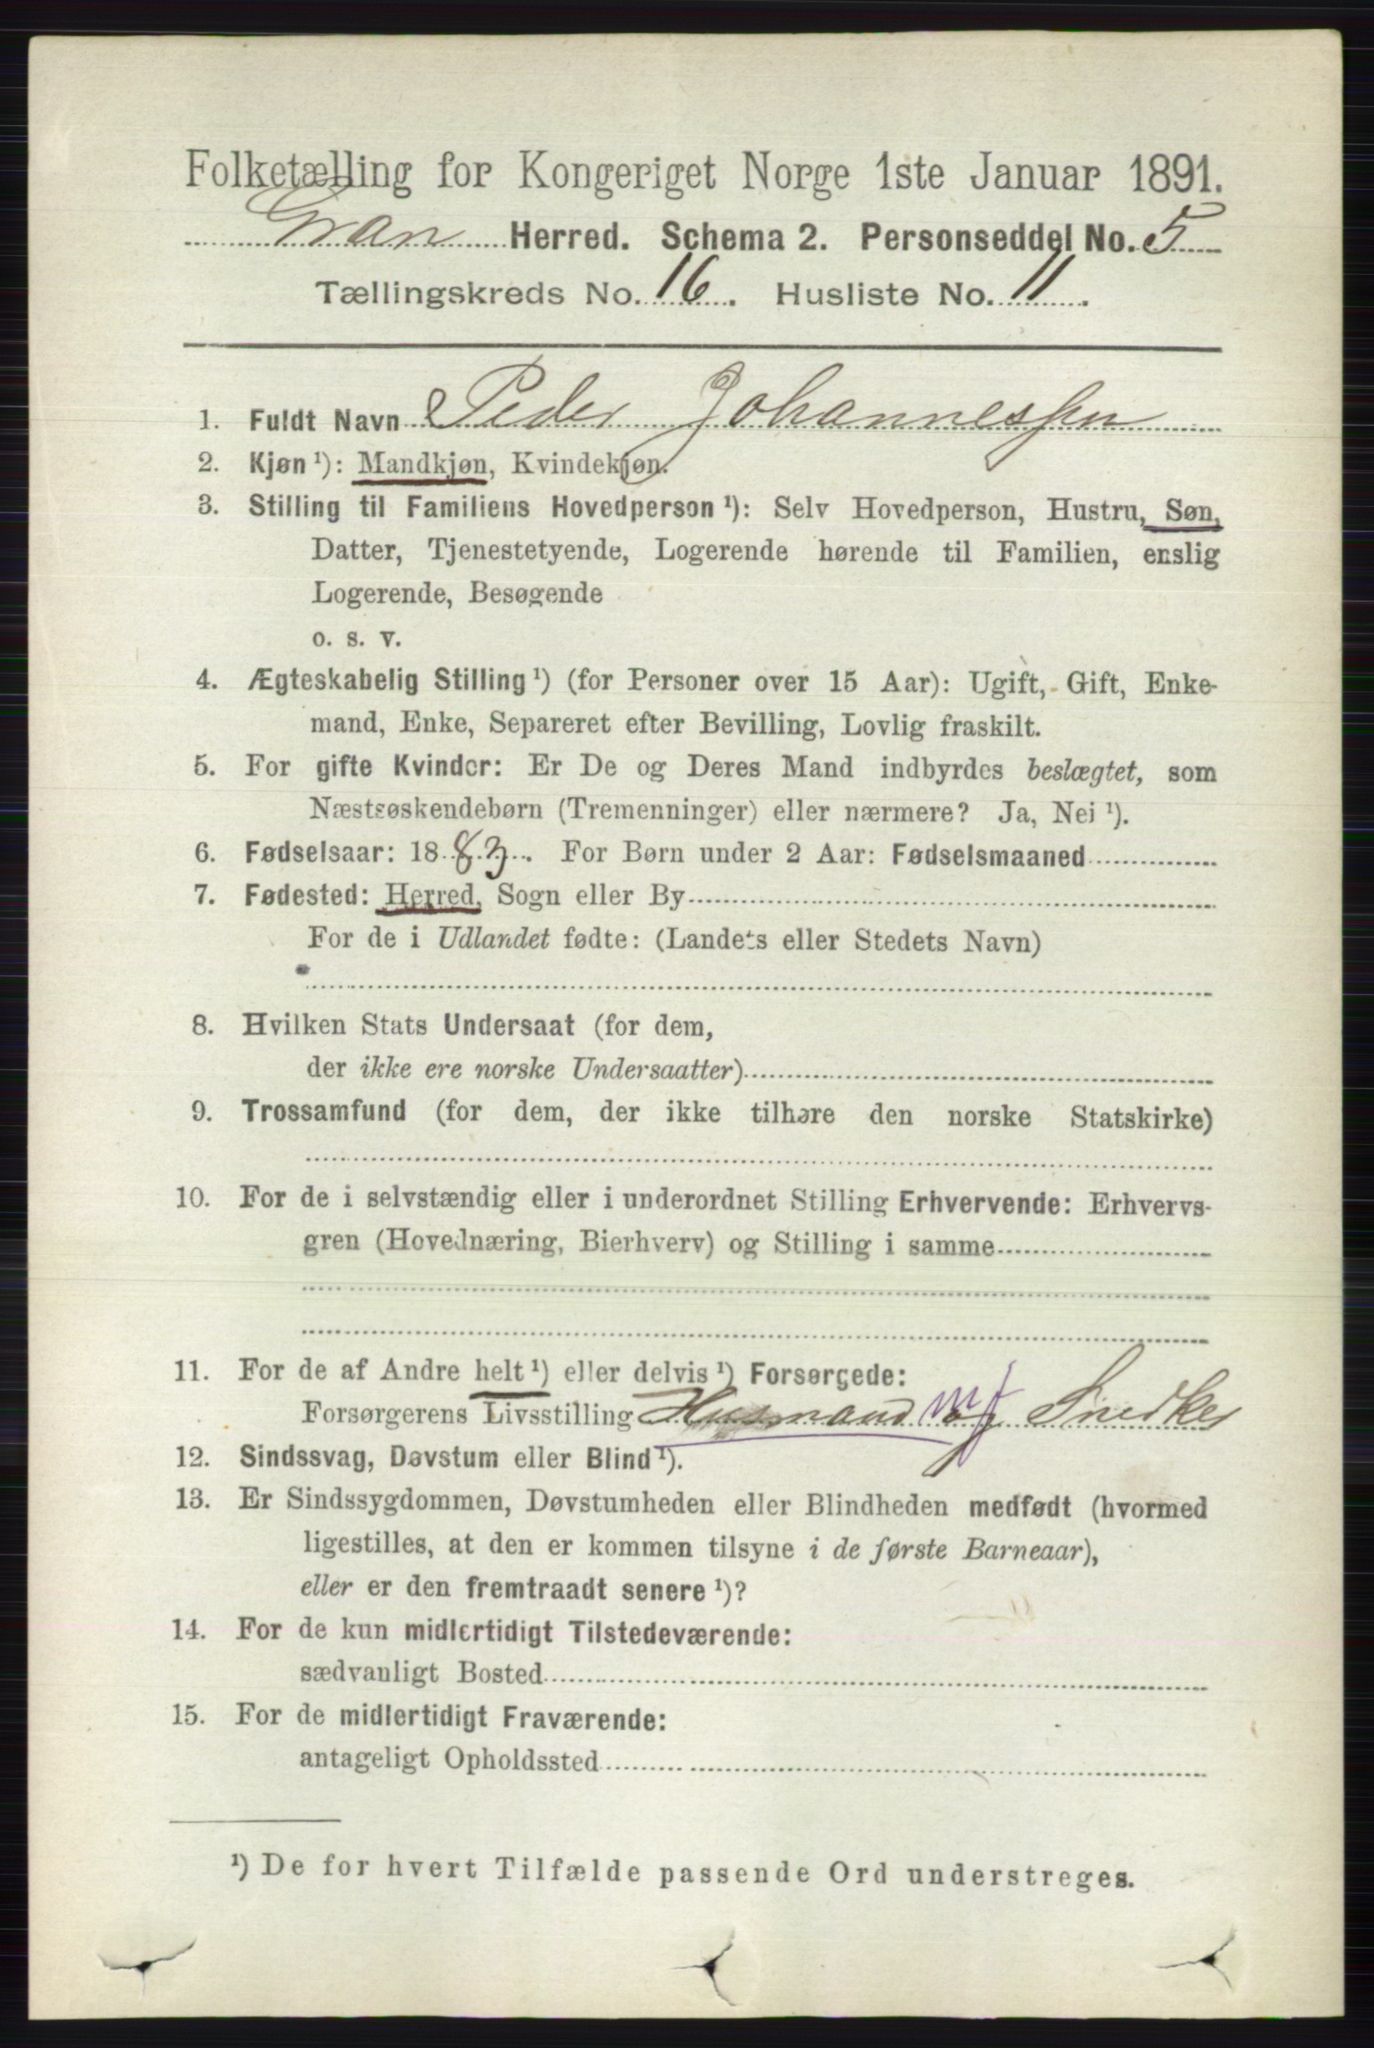 Folketælling for Kongeriget Norge 1ste Januar 1891.
Gran Herred. Schema 2. Personseddel No. 5
Tællingskreds No. 16. Husliste No. 11.
1. Fuldt Navn Peder Johannessen
2. Kjøn ¹): Mandkjøn, Kvindekjøn.
3. Stilling til Familiens Hovedperson ¹): Selv Hovedperson, Hustru, Søn,
Datter, Tjenestetyende, Logerende hørende til Familien, enslig
Logerende, Besøgende
o. s. v.
4. Ægteskabelig Stilling ¹) (for Personer over 15 Aar): Ugift, Gift, Enke-
mand, Enke, Separeret efter Bevilling, Lovlig fraskilt.
5. For gifte Kvinder: Er De og Deres Mand indbyrdes beslægtet, som
Næstsøskendebørn (Tremenninger) eller nærmere? Ja, Nei ¹).
6. Fødselsaar: 1883. For Børn under 2 Aar: Fødselsmaaned
7. Fødested: Herred, Sogn eller By
For de i Udlandet fødte: (Landets eller Stedets Navn)
8. Hvilken Stats Undersaat (for dem,
der ikke ere norske Undersaatter)
9. Trossamfund (for dem, der ikke tilhøre den norske Statskirke)
10. For de i selvstændig eller i underordnet Stilling Erhvervende: Erhvervs-
gren (Hovednæring, Bierhverv) og Stilling i samme
11. For de af Andre helt ¹) eller delvis ¹) Forsørgede:
Forsørgerens Livsstilling Husmand og Snedker
12. Sindssvag, Døvstum eller Blind ¹).
13. Er Sindssygdommen, Døvstumheden eller Blindheden medfødt (hvormed
ligestilles, at den er kommen tilsyne i de første Barneaar),
eller er den fremtraadt senere ¹)?
14. For de kun midlertidigt Tilstedeværende:
sædvanligt Bosted
15. For de midlertidigt Fraværende:
antageligt Opholdssted
¹) De for hvert Tilfælde passende Ord understreges.